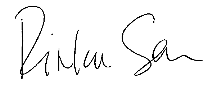 Rinku Sen